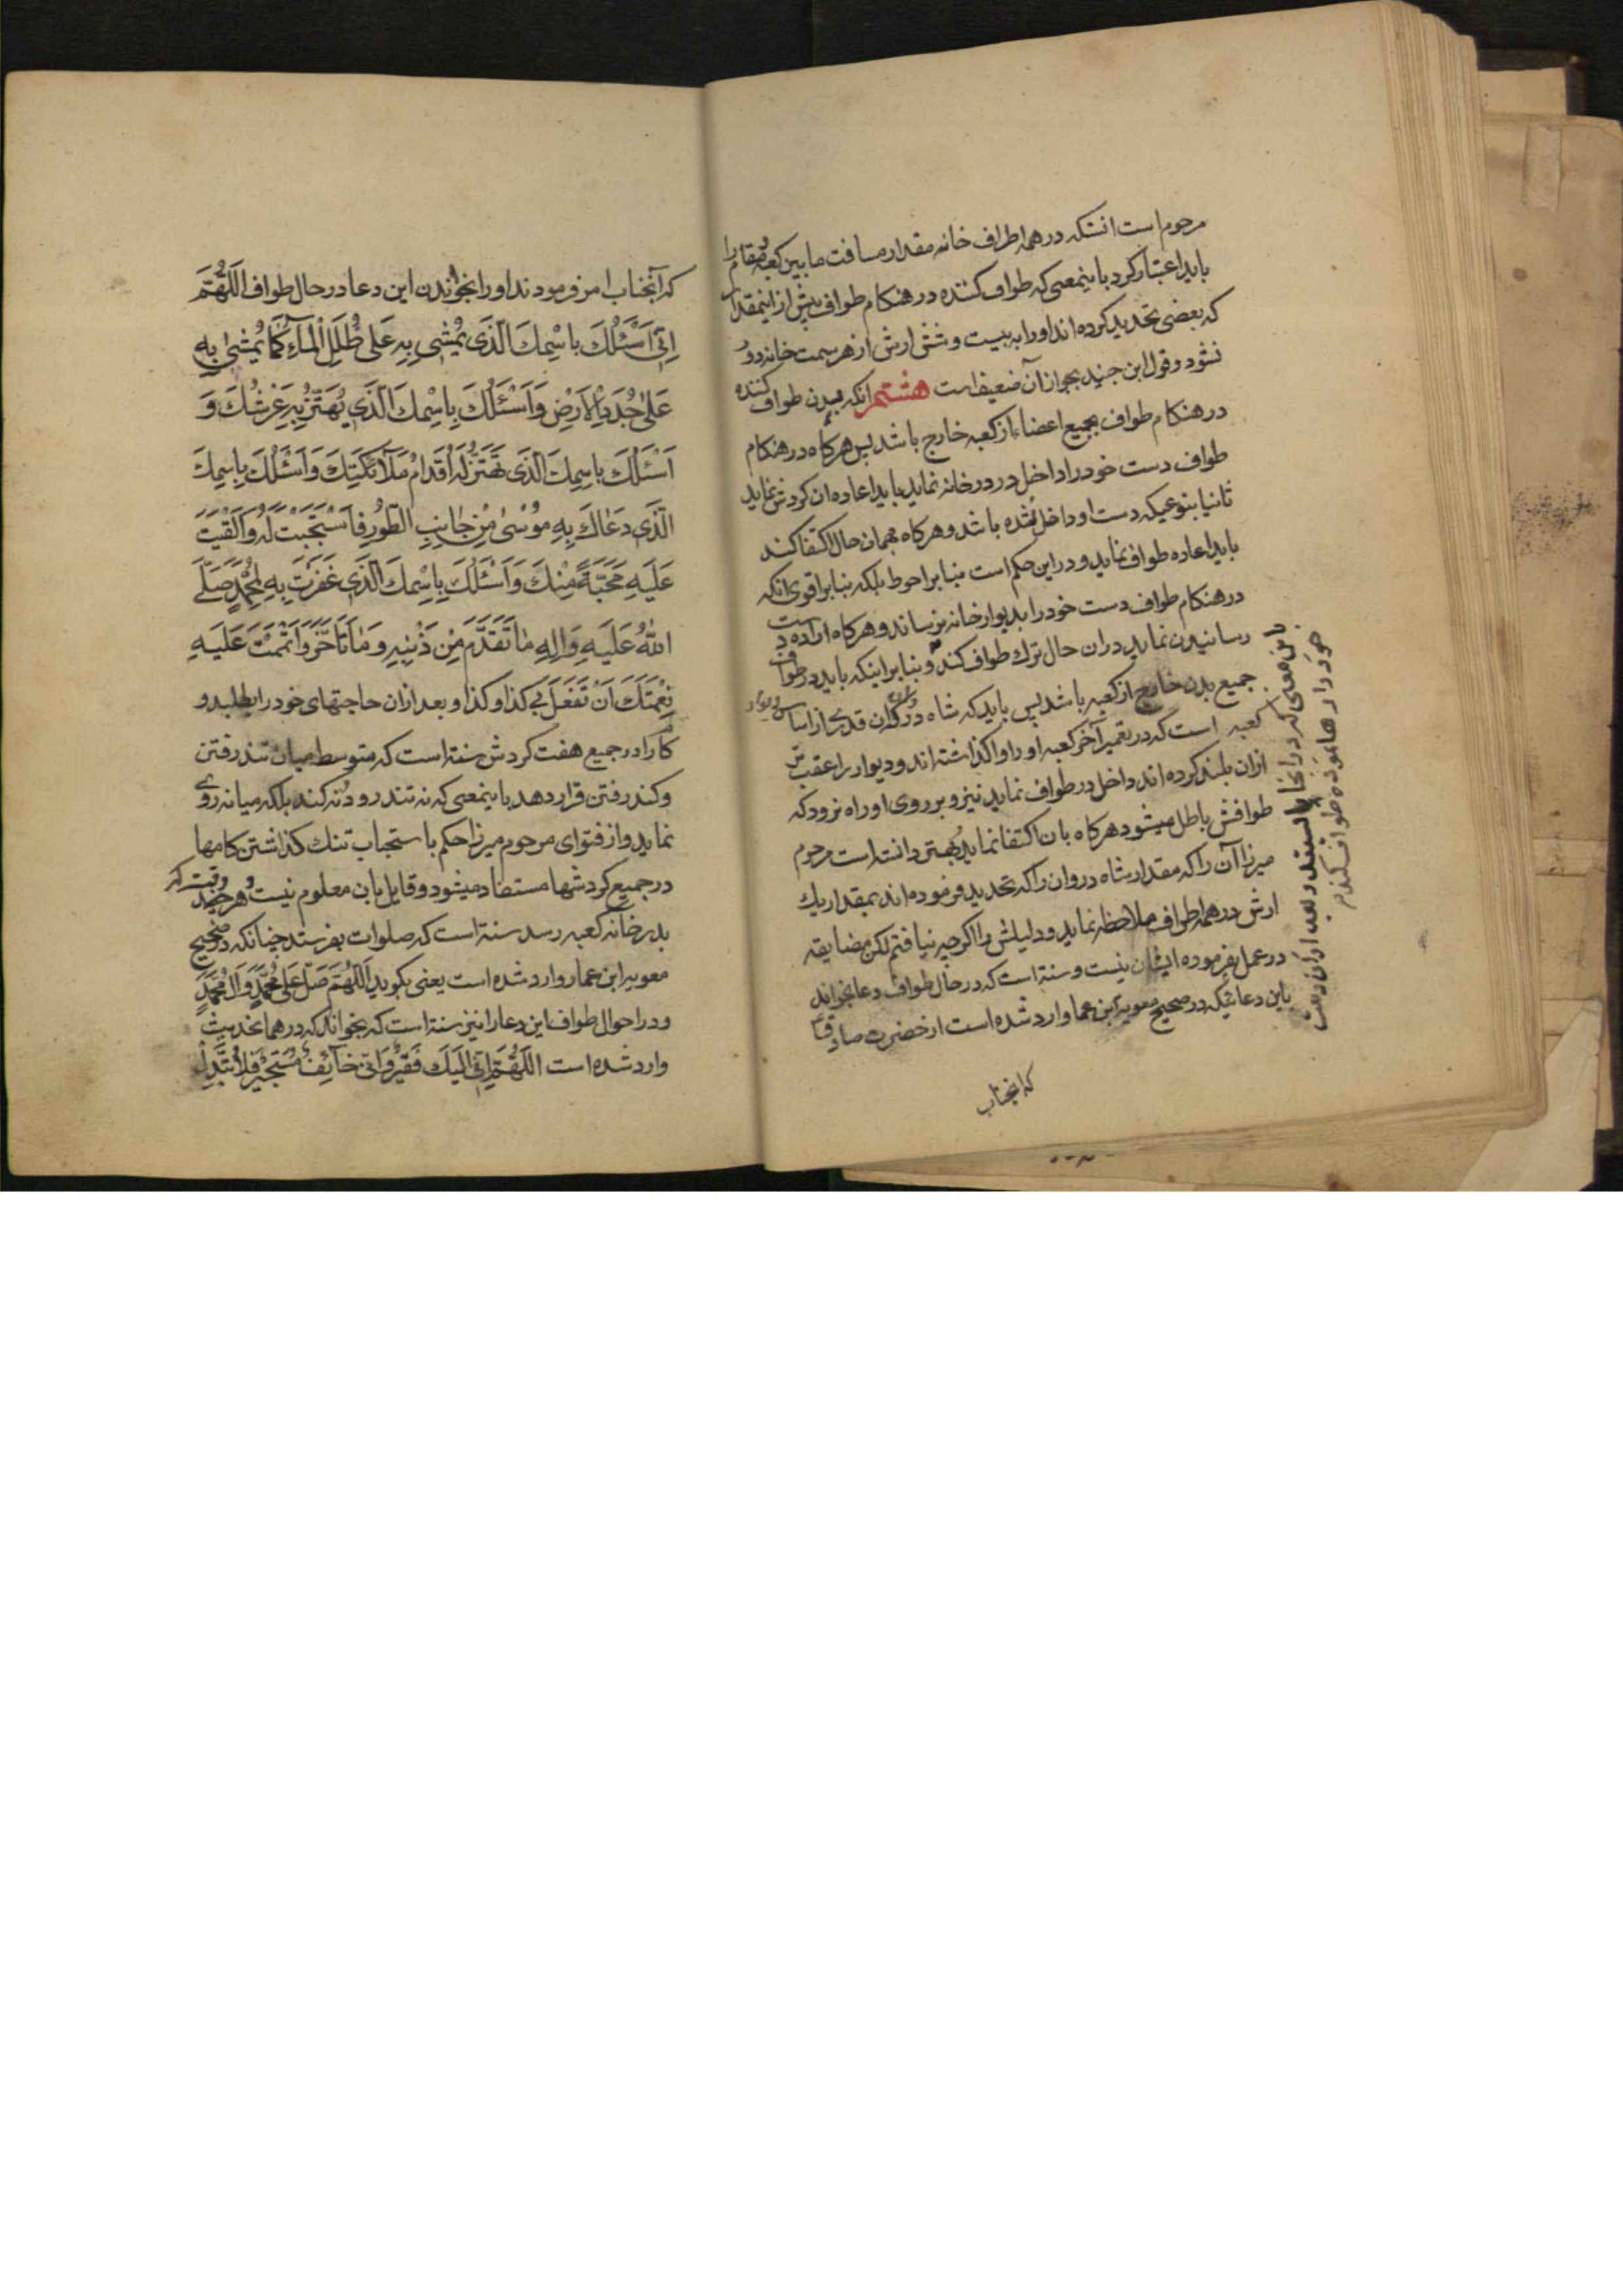 مرحوم است انستکه در همه اطراف خانه مقدار مسافت ما بین کعبه و مقام را
باید اعتبار کرد باینمعنی که طواف کننده در هنکام طواف بیش از اینمقدار
که بعضی تحدید کرده اند اورا به بیست و شش ارش از هر سمت خانه دور
نشود و قول ابن جنید بجواز آن ضعیف است هشتم انکه بدن طواف کننده
در هنکام طواف بجمیع اعضاء از کعبه خارج باشد پس هرکاه در هنکام
طواف دست خود را داخل در در خانه نماید باید اعاده ان کردش نماید
ثانیا بنوعیکه دست او داخل نشده باشد و هرکاه بهمان حال اکتفا کند
باید اعاده طواف نماید و در این حکم است بنابر احوط بلکه بنابر اقوی انکه
در هنکام طواف دست خود را بدیوار خانه نرساند و هرکاه اراده دست
رسانیدن نماید دران حال ترك طواف کند و بنابر اینکه باید در طواف
جمیع بدن خارج از کعبه باشد پس باید که شاه دروان قدری از اساس دیوار
کعبه است که در تعمیر آخر کعبه اورا واکذاشته اند و دیوار را عقب تر
ازان بلند کرده اند داخل در طواف نماید نیز و بر روی او راه نرود که
طوافش باطل میشود هرکاه بان اکتفا نماید و بهتر دانسته است مرحوم
میرزا آن را که مقدار شاه دروان را که تحدید فرموده اند بمقدار یك
ارش در همه اطراف ملاحظه نماید و دلیلش را اکرچه نیافتم لکن مضایقه
در عمل بفرموده ایشان نیست و سنة است که در حال طواف دعا بخواند
باین دعائیکه در صحیح معویة ابن عمار وارد شده است از حضرت صادق ع
که انجناب
باین معنی که در انجا بایستد و بعد ازان دست
خود را رها نموده طواف کند
که آنجناب امر فرمودند اورا بخواندن این دعا در حال طواف اَللّهُمَّ
اِنّی اَسْئَلُكَ بِاسْمِكَ الَّذی یُمْشی بِهِ عَلی ظُلَلِ الْمآءِ کَما یُمْشی بِهِ
عَلی جُدَدِ الْاَرْضِ وَاَسْئَلُكَ بِاِسْمِكَ الَّذی یَهْتَزُّ بِهِ عَرْشُكَ وَ
اَسْئَلُكَ بِاسْمِكَ الَّذی تَهْتَزُّ لَهُ اَقْدامُ مَلآئِکَتِكَ وَاَسْئَلُكَ بِاسْمِكَ
الَّذی دَعاكَ بِهِ مُوسی مِنْ جانِبِ الطُّورِ فَاسْتَجَبْتَ لَهُ وَاَلْقَیْتَ
عَلَیْهِ مَحَبَّةً مِنْكَ وَاَسْئَلُكَ بِاِسْمِكَ الَّذی غَفَرْتَ بِهِ لِمُحَمَّدٍ صَلَّی
اللّهُ عَلَیْهِ وَالِهِ ما تَقَدَّمَ مِنْ ذَنْبِهِ وَما تَاَخَّرَ وَاَتْمَمْتَ عَلَیْهِ
نِعْمَتَكَ اَنْ تَفْعَلَ بی کَذا وکذا و بعد ازان حاجتهای خود را بطلبد و
کام را در جمیع هفت کردش سنة است که متوسط میان تند رفتن
و کند رفتن قرار دهد باینمعنی که نه تند رود و نه کند بلکه میانه روی
نماید و از فتوای مرحوم میرزا حکم باستحباب تنك کذاشتن کامها
در جمیع کردشها مستفاد میشود و قایل بان معلوم نیست و هر وقت که
بدر خانه کعبه رسد سنة است که صلوات بفرستد چنانکه در صحیح
معویه ابن عمار وارد شده است یعنی بکوید اَللّهُمَّ صَلِّ عَلی مُحَمَّدٍ وَالِ مُحَمَّدٍ
و در احوال طواف این دعا را نیز سنة است که بخواند که در همانحدیث
وارد شده است اَللّهُمَّ اِنّی اِلَیْكَ فَقیرٌ وَاِنّی خآئِفٌ مُسْتَجیرٌ فَلا تُبَدِّلْ